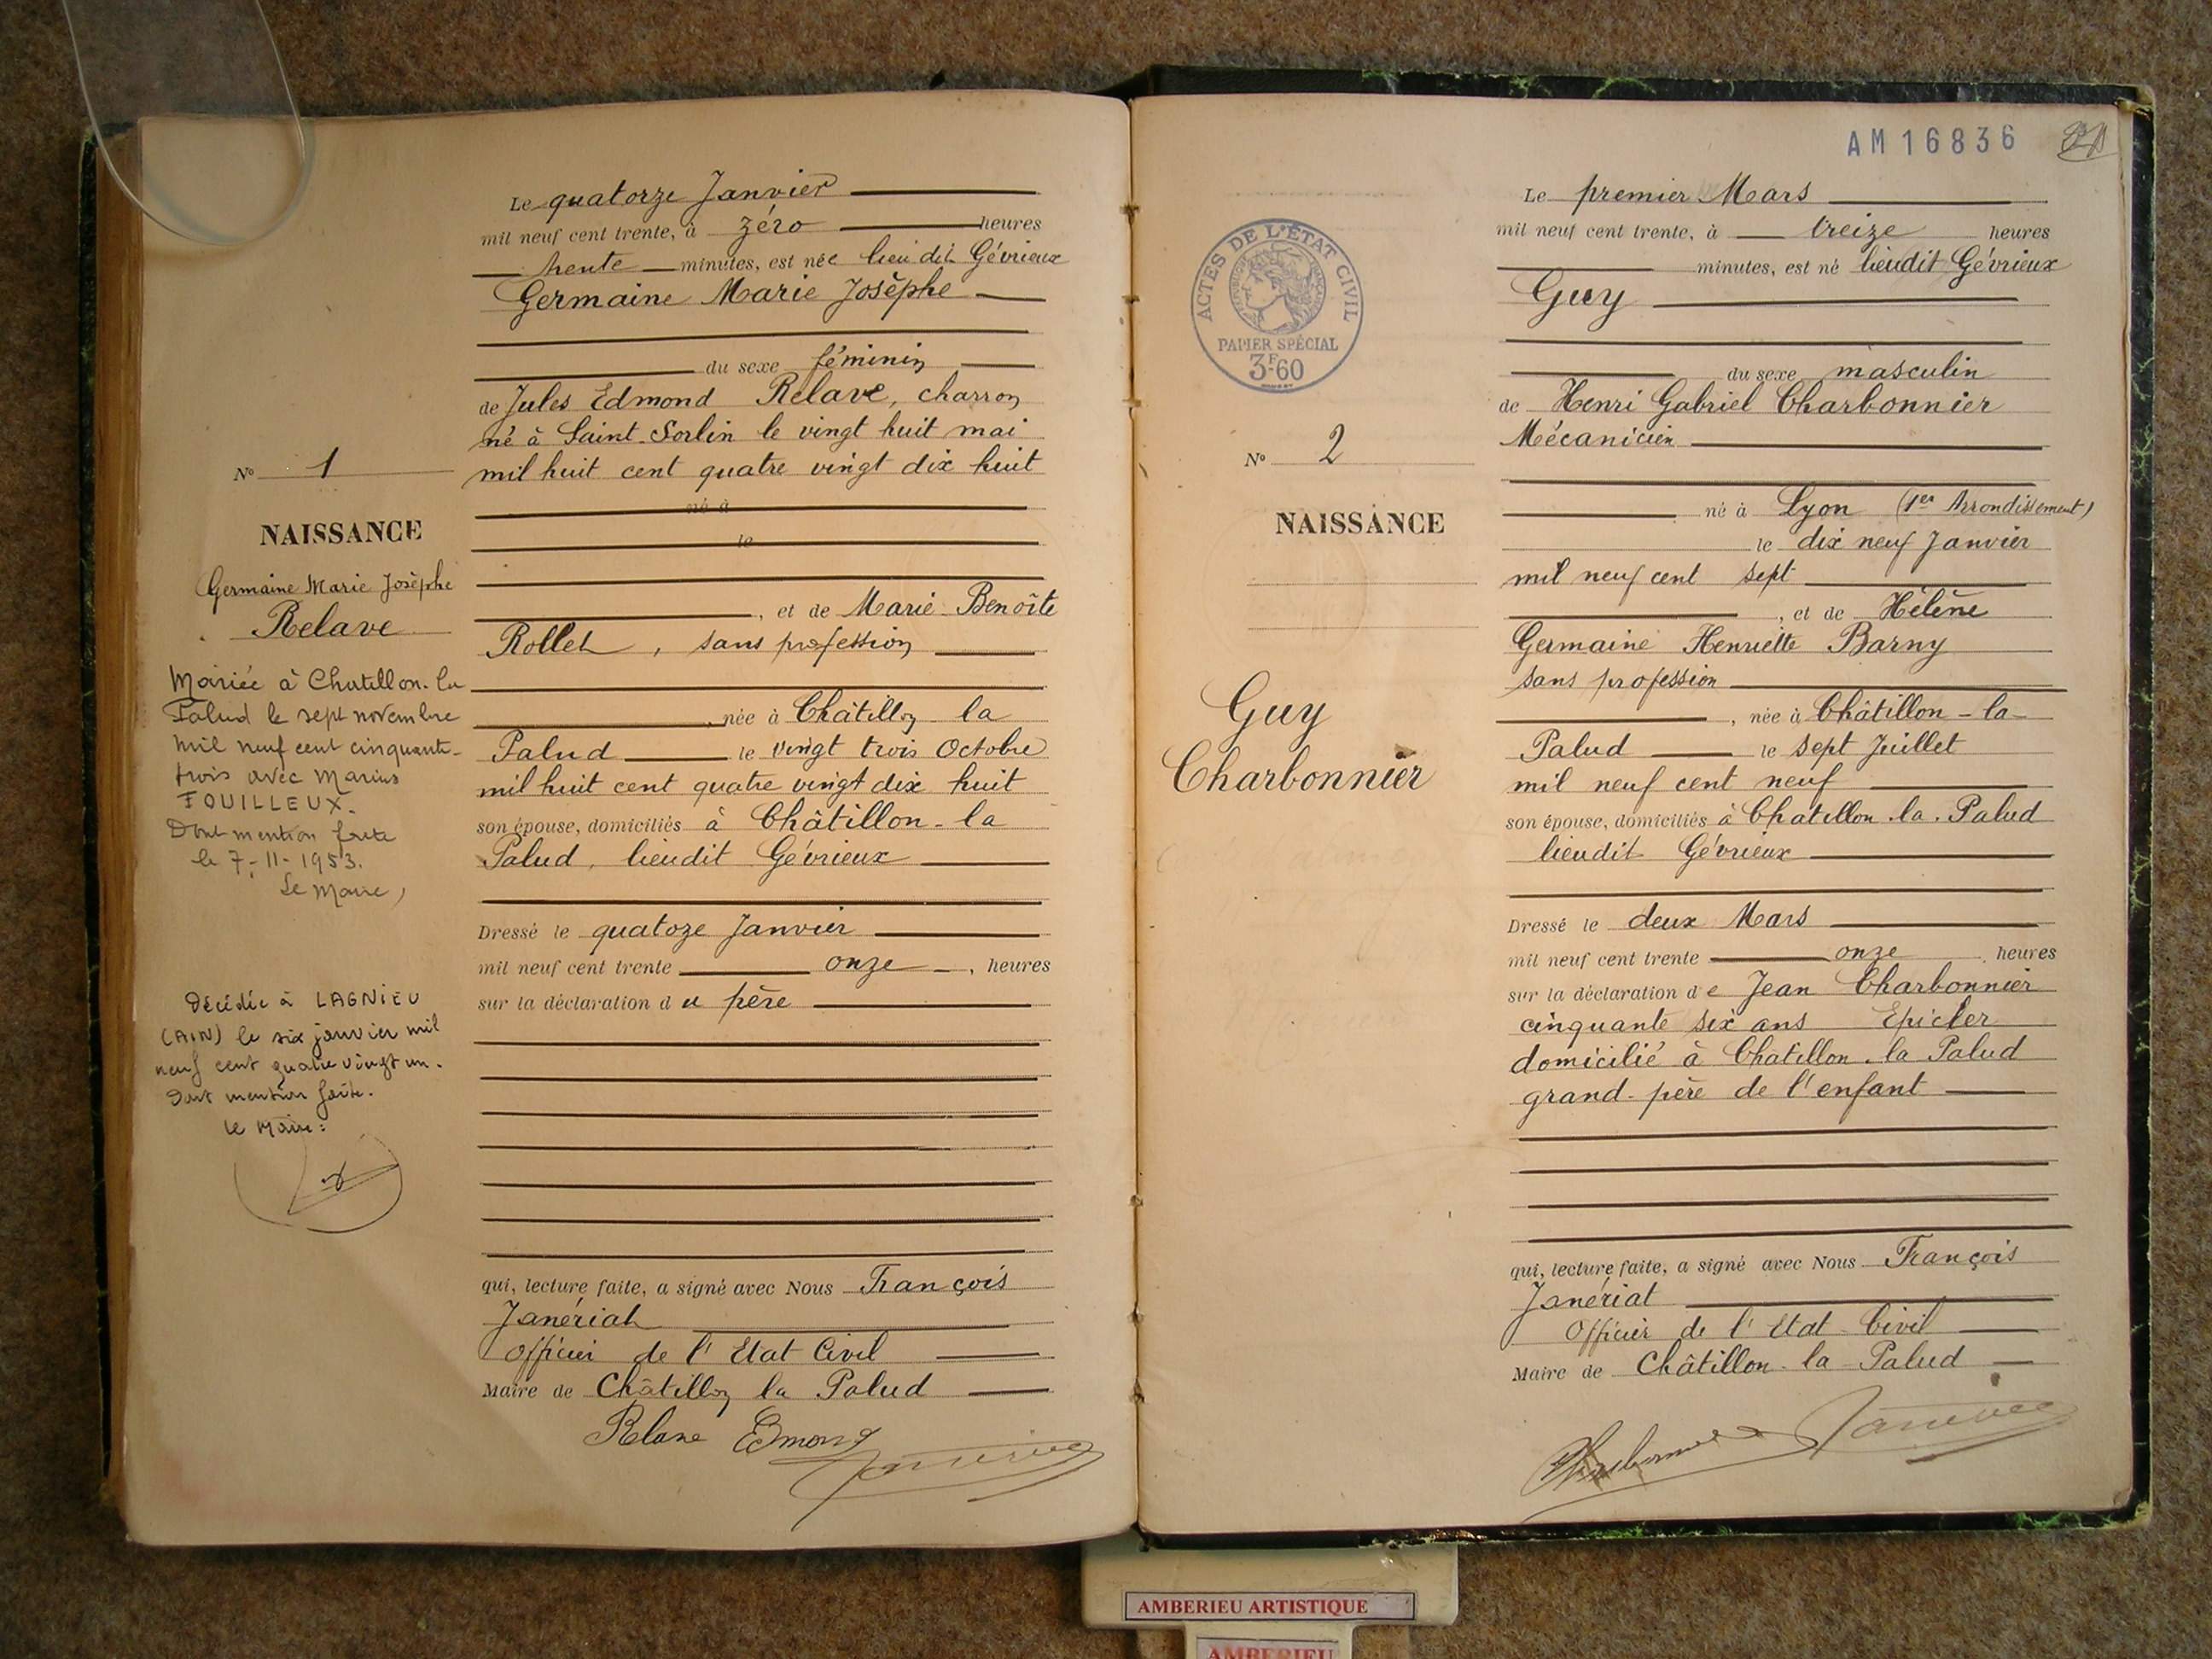 Le quatorze Janvier
mil neuf cent trente, à zéro heures
trente minutes, est née lieu dit Gévrieux
Germaine Marie Josèphe
du sexe féminin
de Jules Edmond Relave, charron
né à Saint-Sorlin le vingt huit mai
mil huit cent quatre vingt dix huit
né à
le
, et de Marie Benoîte
Rollet, sans profession
, née à Châtillon la
Palud le vingt trois Octobre
mil huit cent quatre vingt dix huit
son épouse, domiciliés à Châtillon-la
Palud, lieudit Gévrieux
Dressé le quatoze Janvier
mil neuf cent trente onze, heures
sur la déclaration du père
qui, lecture faite, a signé avec Nous François
Janériat
Officier de l'Etat Civil
Maire de Châtillon la Palud
Relave Edmond
No 1
NAISSANCE
Germaine Marie Josèphe
Relave
Mariée à Chatillon-la
Palud le sept novembre
mil neuf cent cinquante-
trois avec Marius
FOUILLEUX.
Dont mention faite
le 7-11-1953.
Le Maire,
Décédée à LAGNIEU
(AIN) le six janvier mil
neuf cent quatre vingt un.
Dont mention faite.
Le Maire:
AM16836
ACTES DE L'ÉTAT CIVIL
PAPIER SPÉCIAL
3F60
No 2
NAISSANCE
Guy
Charbonnier
Le premier Mars
mil neuf cent trente, à treize heures
minutes, est né lieudit Gévrieux
Guy
du sexe masculin
de Henri Gabriel Charbonnier
Mécanicien
né à Lyon (1er Arrondissement)
le dix neuf Janvier
mil neuf cent sept
, et de Hélène
Germaine Henriette Barny
sans profession
, née à Châtillon-la-
Palud le sept Juillet
mil neuf cent neuf
son épouse, domiciliés à Chatillon-la-Palud
lieudit Gévrieux
Dressé le deux Mars
mil neuf cent trente onze heures
sur la déclaration de Jean Charbonnier
cinquante six ans Epicier
domicilié à Chatillon-la Palud
grand-père de l'enfant
qui, lecture faite, a signé avec Nous François
Janériat
Officier de l'Etat Civil
Maire de Châtillon-la-Palud
Charbonnier Janériat
AMBERIEU ARTISTIQUE
AMBERIEU